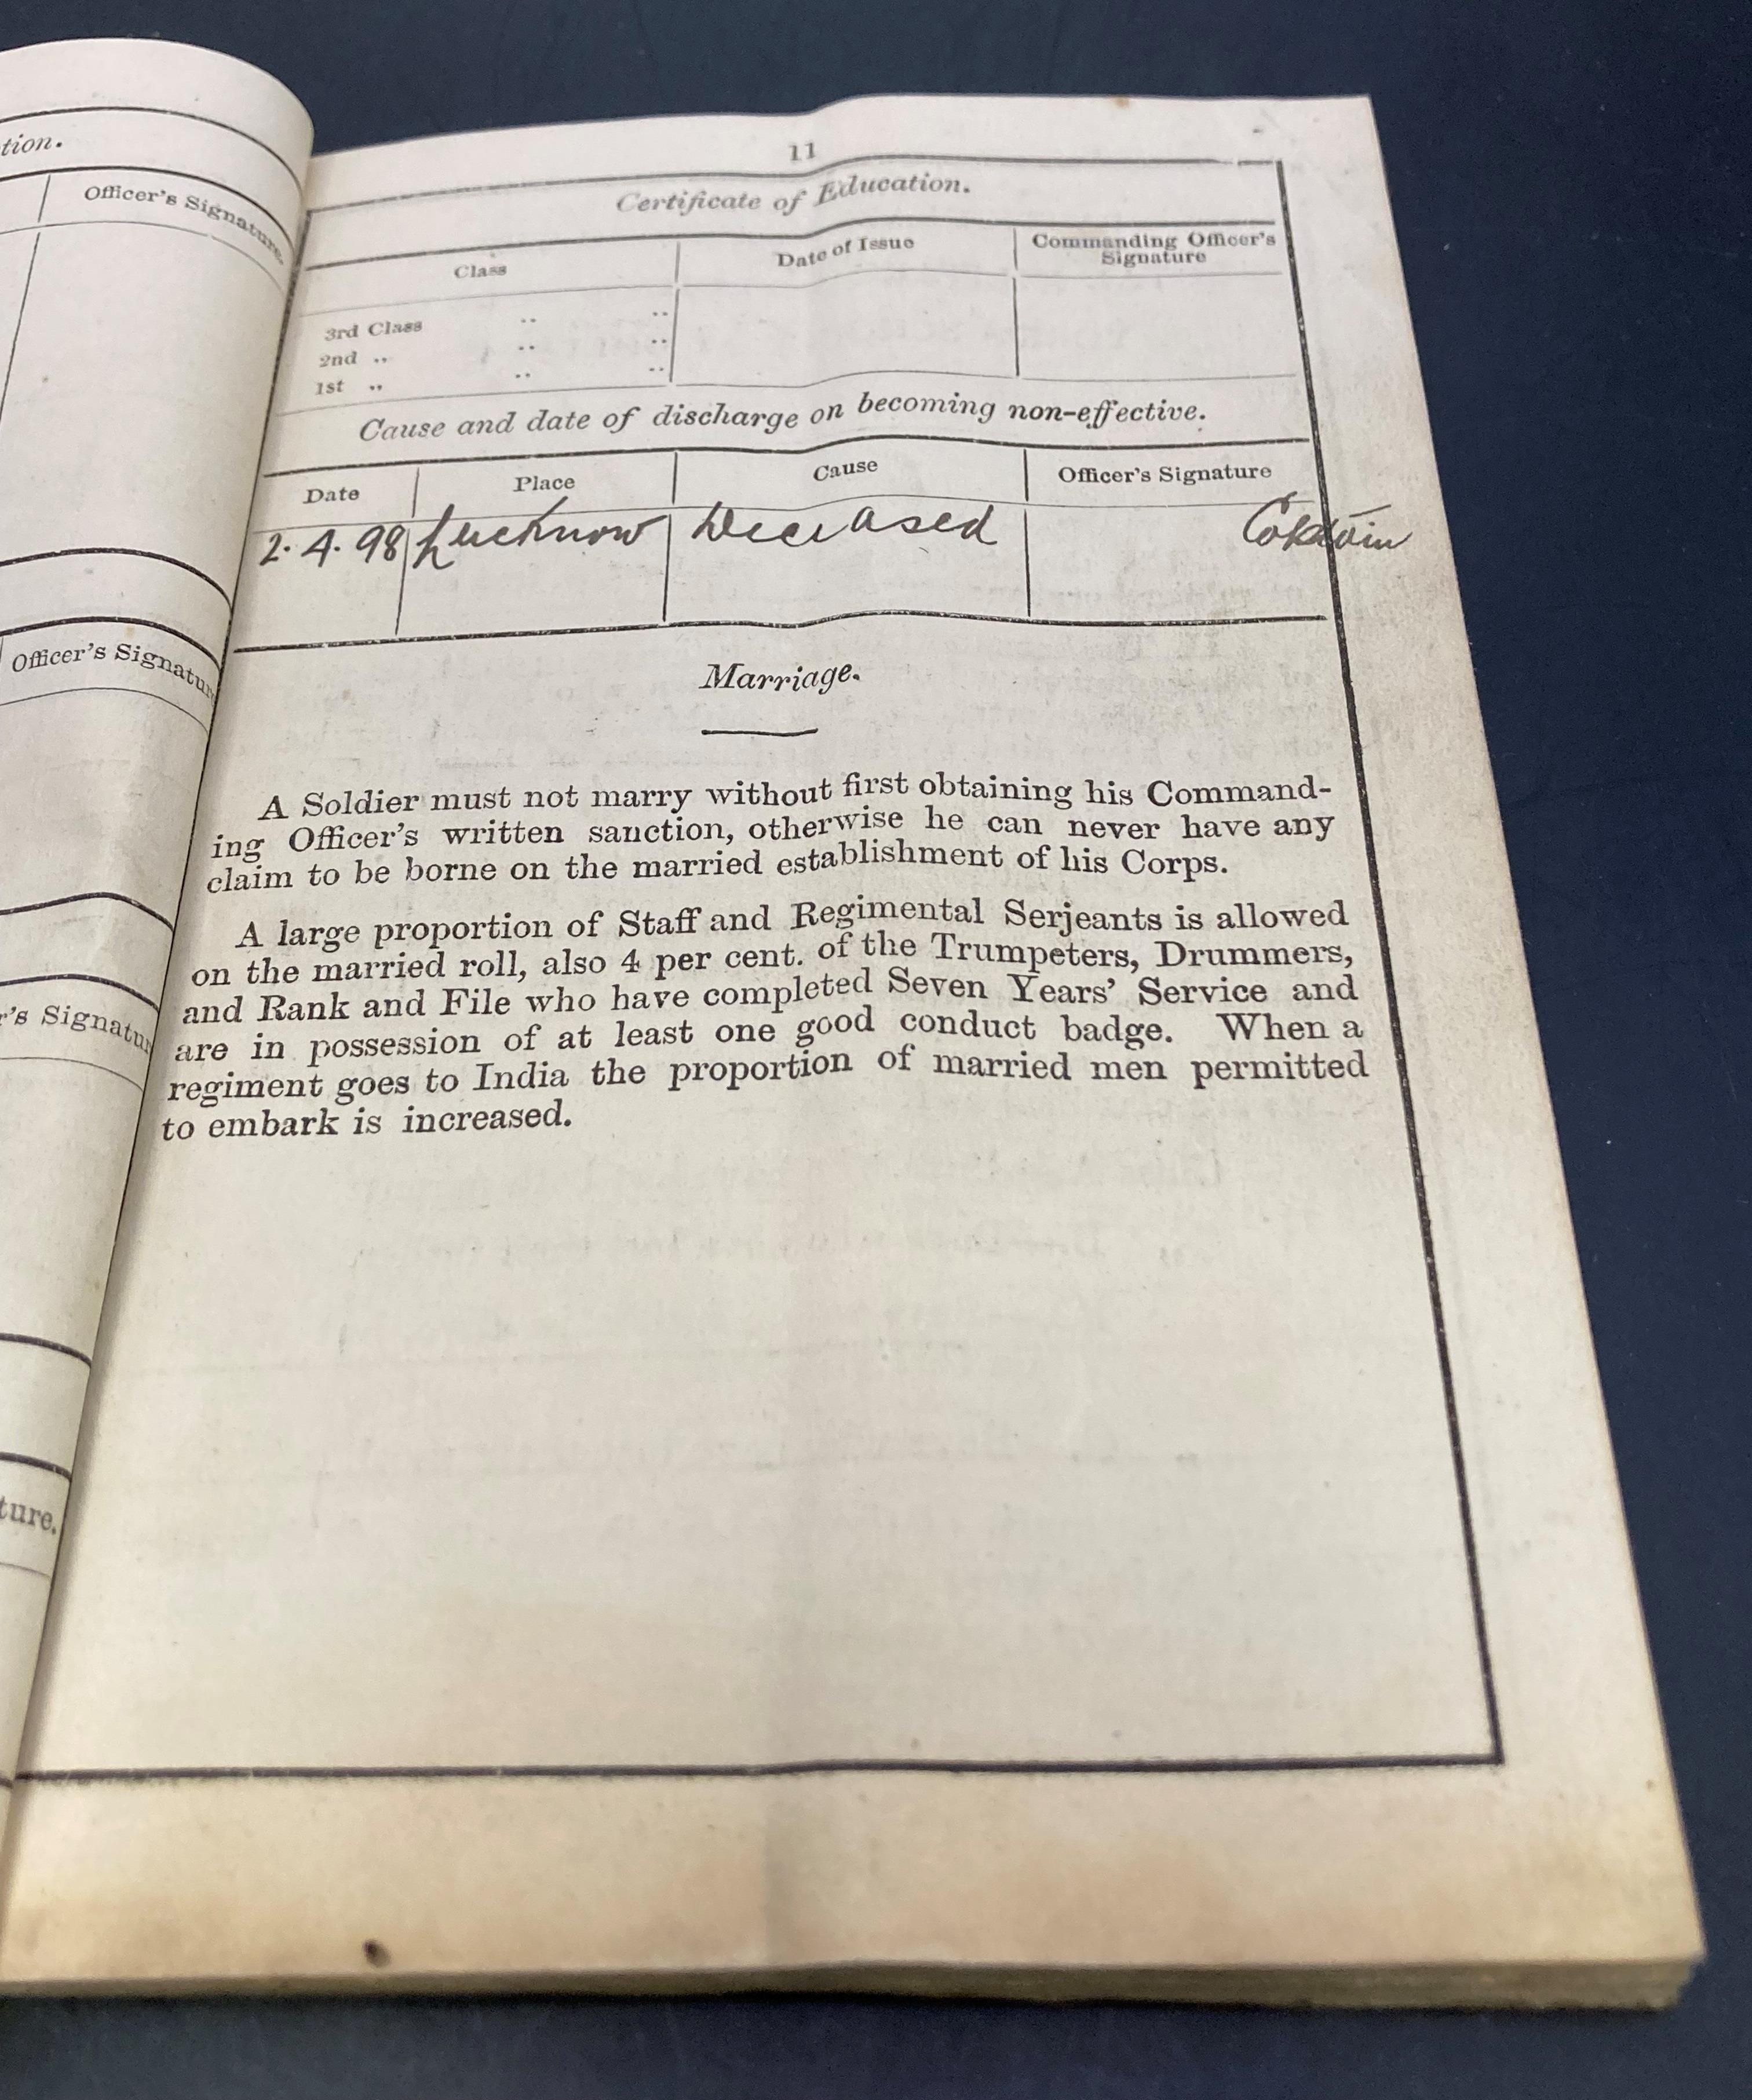 tion.
Officer's Signature.
Officer's Signatur
r's Signatur
ture.
11
Certificate of Education.
Class Date of Issue Commanding Officer's Signature
3rd Class .. ..
2nd ,, .. ..
1st ,, .. ..
Cause and date of discharge on becoming non-effective.
Date Place Cause Officer's Signature
2.4.98 Lucknow Deceased
Marriage.
A Soldier must not marry without first obtaining his Command-
ing Officer's written sanction, otherwise he can never have any
claim to be borne on the married establishment of his Corps.
A large proportion of Staff and Regimental Serjeants is allowed
on the married roll, also 4 per cent. of the Trumpeters, Drummers,
and Rank and File who have completed Seven Years' Service and
are in possession of at least one good conduct badge. When a
regiment goes to India the proportion of married men permitted
to embark is increased.